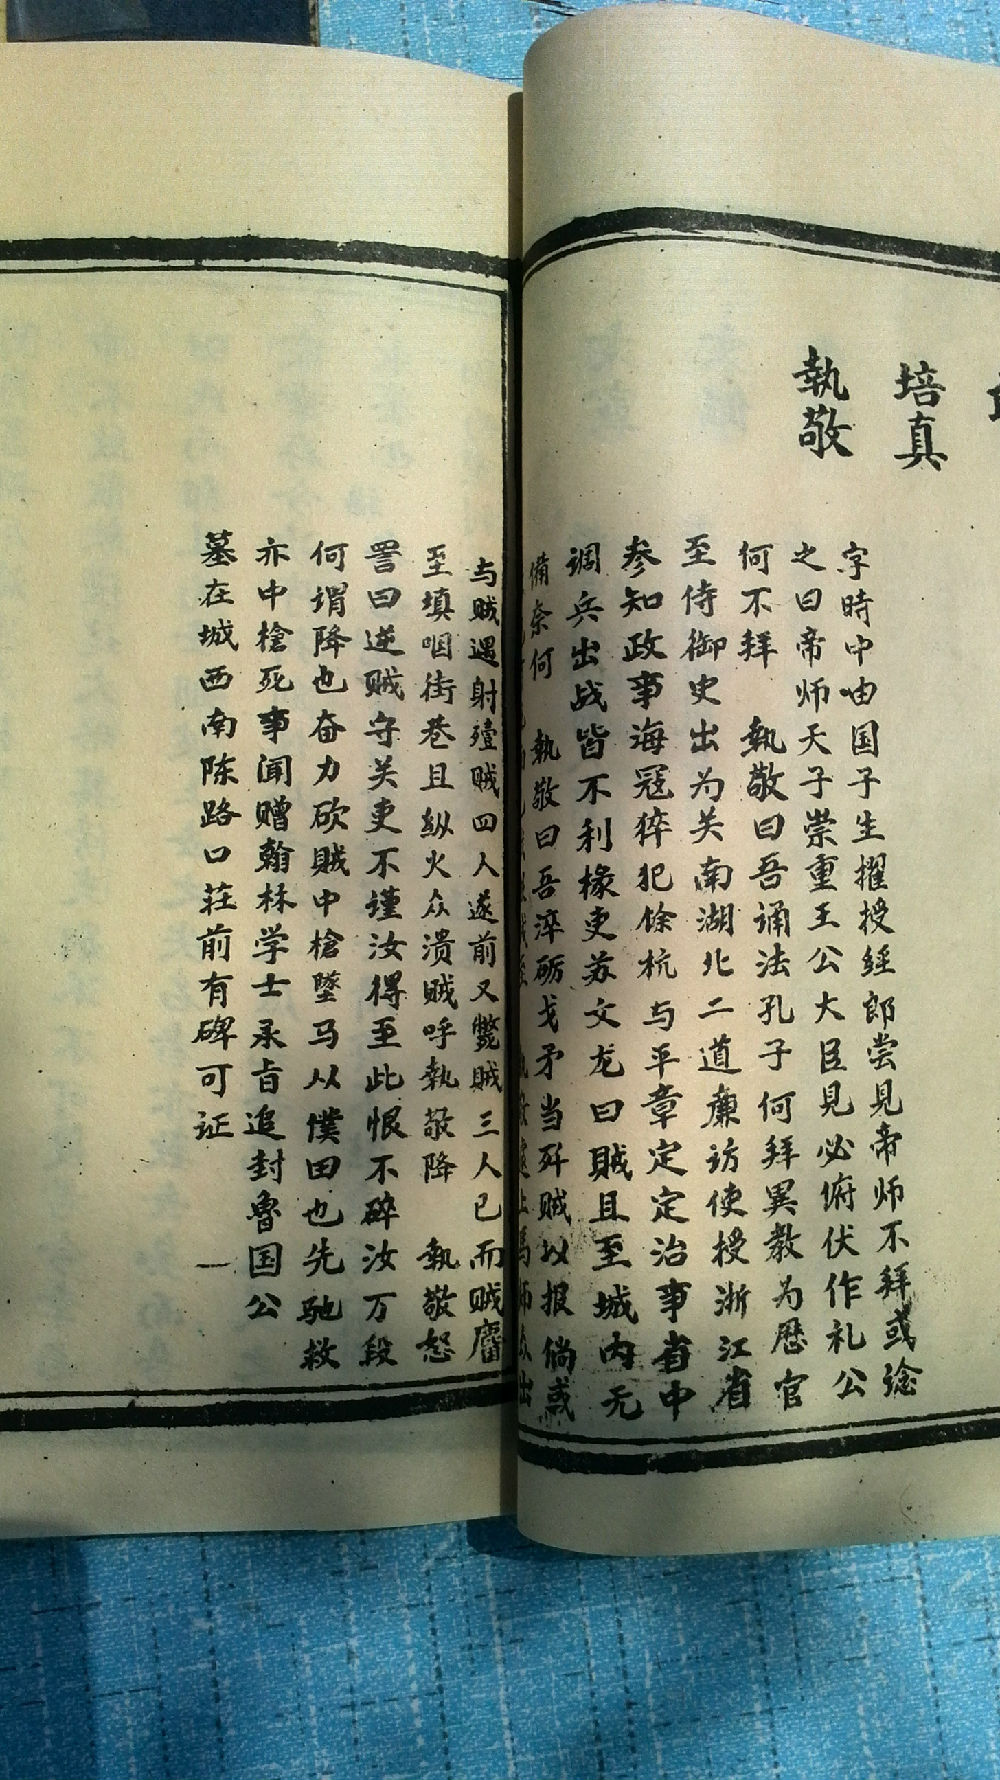 培真
執敬
字時中由国子生擢授経郎尝見帝师不拜或谂
之曰帝师天子崇重王公大臣見必俯伏作礼公
何不拜 執敬曰吾诵法孔子何拜異教为歷官
至侍御史出为关南湖北二道廉访使授浙江省
参知政事海冦猝犯馀杭与平章定定治事省中
调兵出战皆不利椽吏苏文龙曰贼且至城内无
備奈何 執敬曰吾淬砺戈矛当歼贼以报倘或
与贼遇射殪贼四人遂前又斃贼三人已而贼麕
至填咽街巷且纵火众溃贼呼執敬降 執敬怒
詈曰逆贼守关吏不谨汝得至此恨不碎汝万段
何谓降也奋力砍贼中槍墜马从僕田也先驰救
亦中槍死事闻赠翰林学士承旨追封魯国公
墓在城西南陈路口莊前有碑可证 一